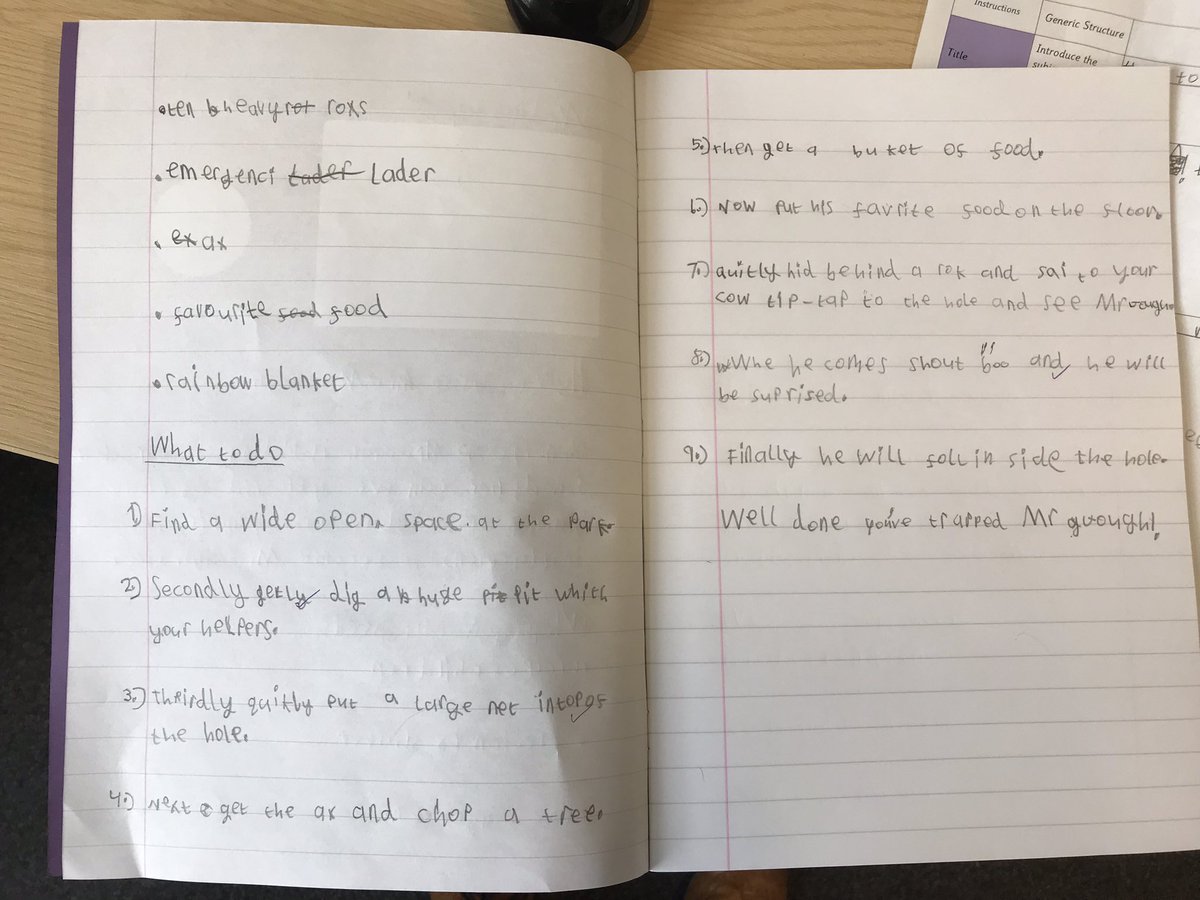 •ten heavy roxs
• emergenci Lader
• ax
• favourite food
• rainbow blanket
What to do
1) Find a wide open. space. at the Park
2.) Secondly dig a huge pit which
your helpers.
3.) thrirdly quitly put a large net intop of
the hole.
4.) Next get the ax and chop a tree.
5.) then get a buket of food.
6.) Now put his favrite food on the floor.
7.) quitly hid behind a rok and sai to your
cow tip-tap to the hole and see Mr
8.) Whe he comes shout boo and he will
be suprised.
9.) Finally he will foll in side the hole.
Well done you've trapped Mr
Instructions
Generic Structure
Title
Introduce the
to